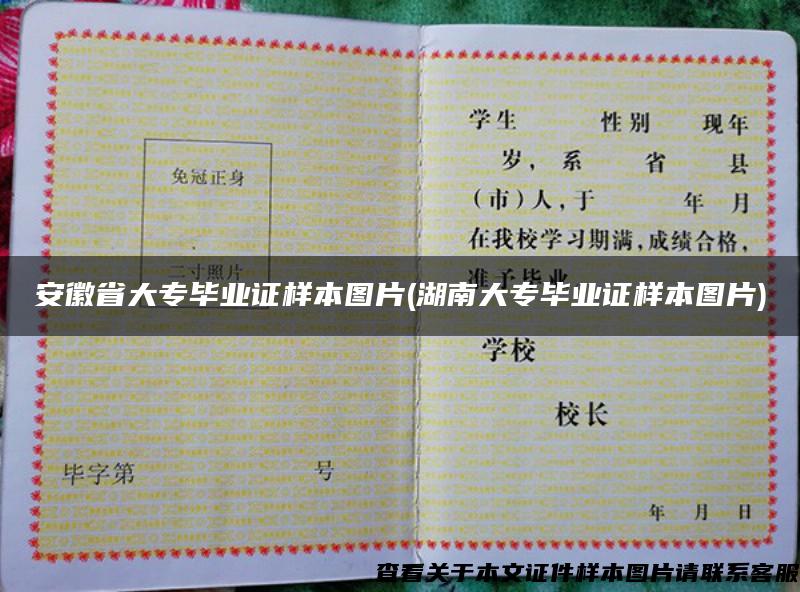 免冠正身
二寸照片
毕字第 号
学生 性别 现年
岁，系 省 县
（市）人，于 年 月
在我校学习期满，成绩合格，
准予毕业
学校
校长
年 月 日
安徽省大专毕业证样本图片(湖南大专毕业证样本图片)
查看关于本文证件样本图片请联系客服